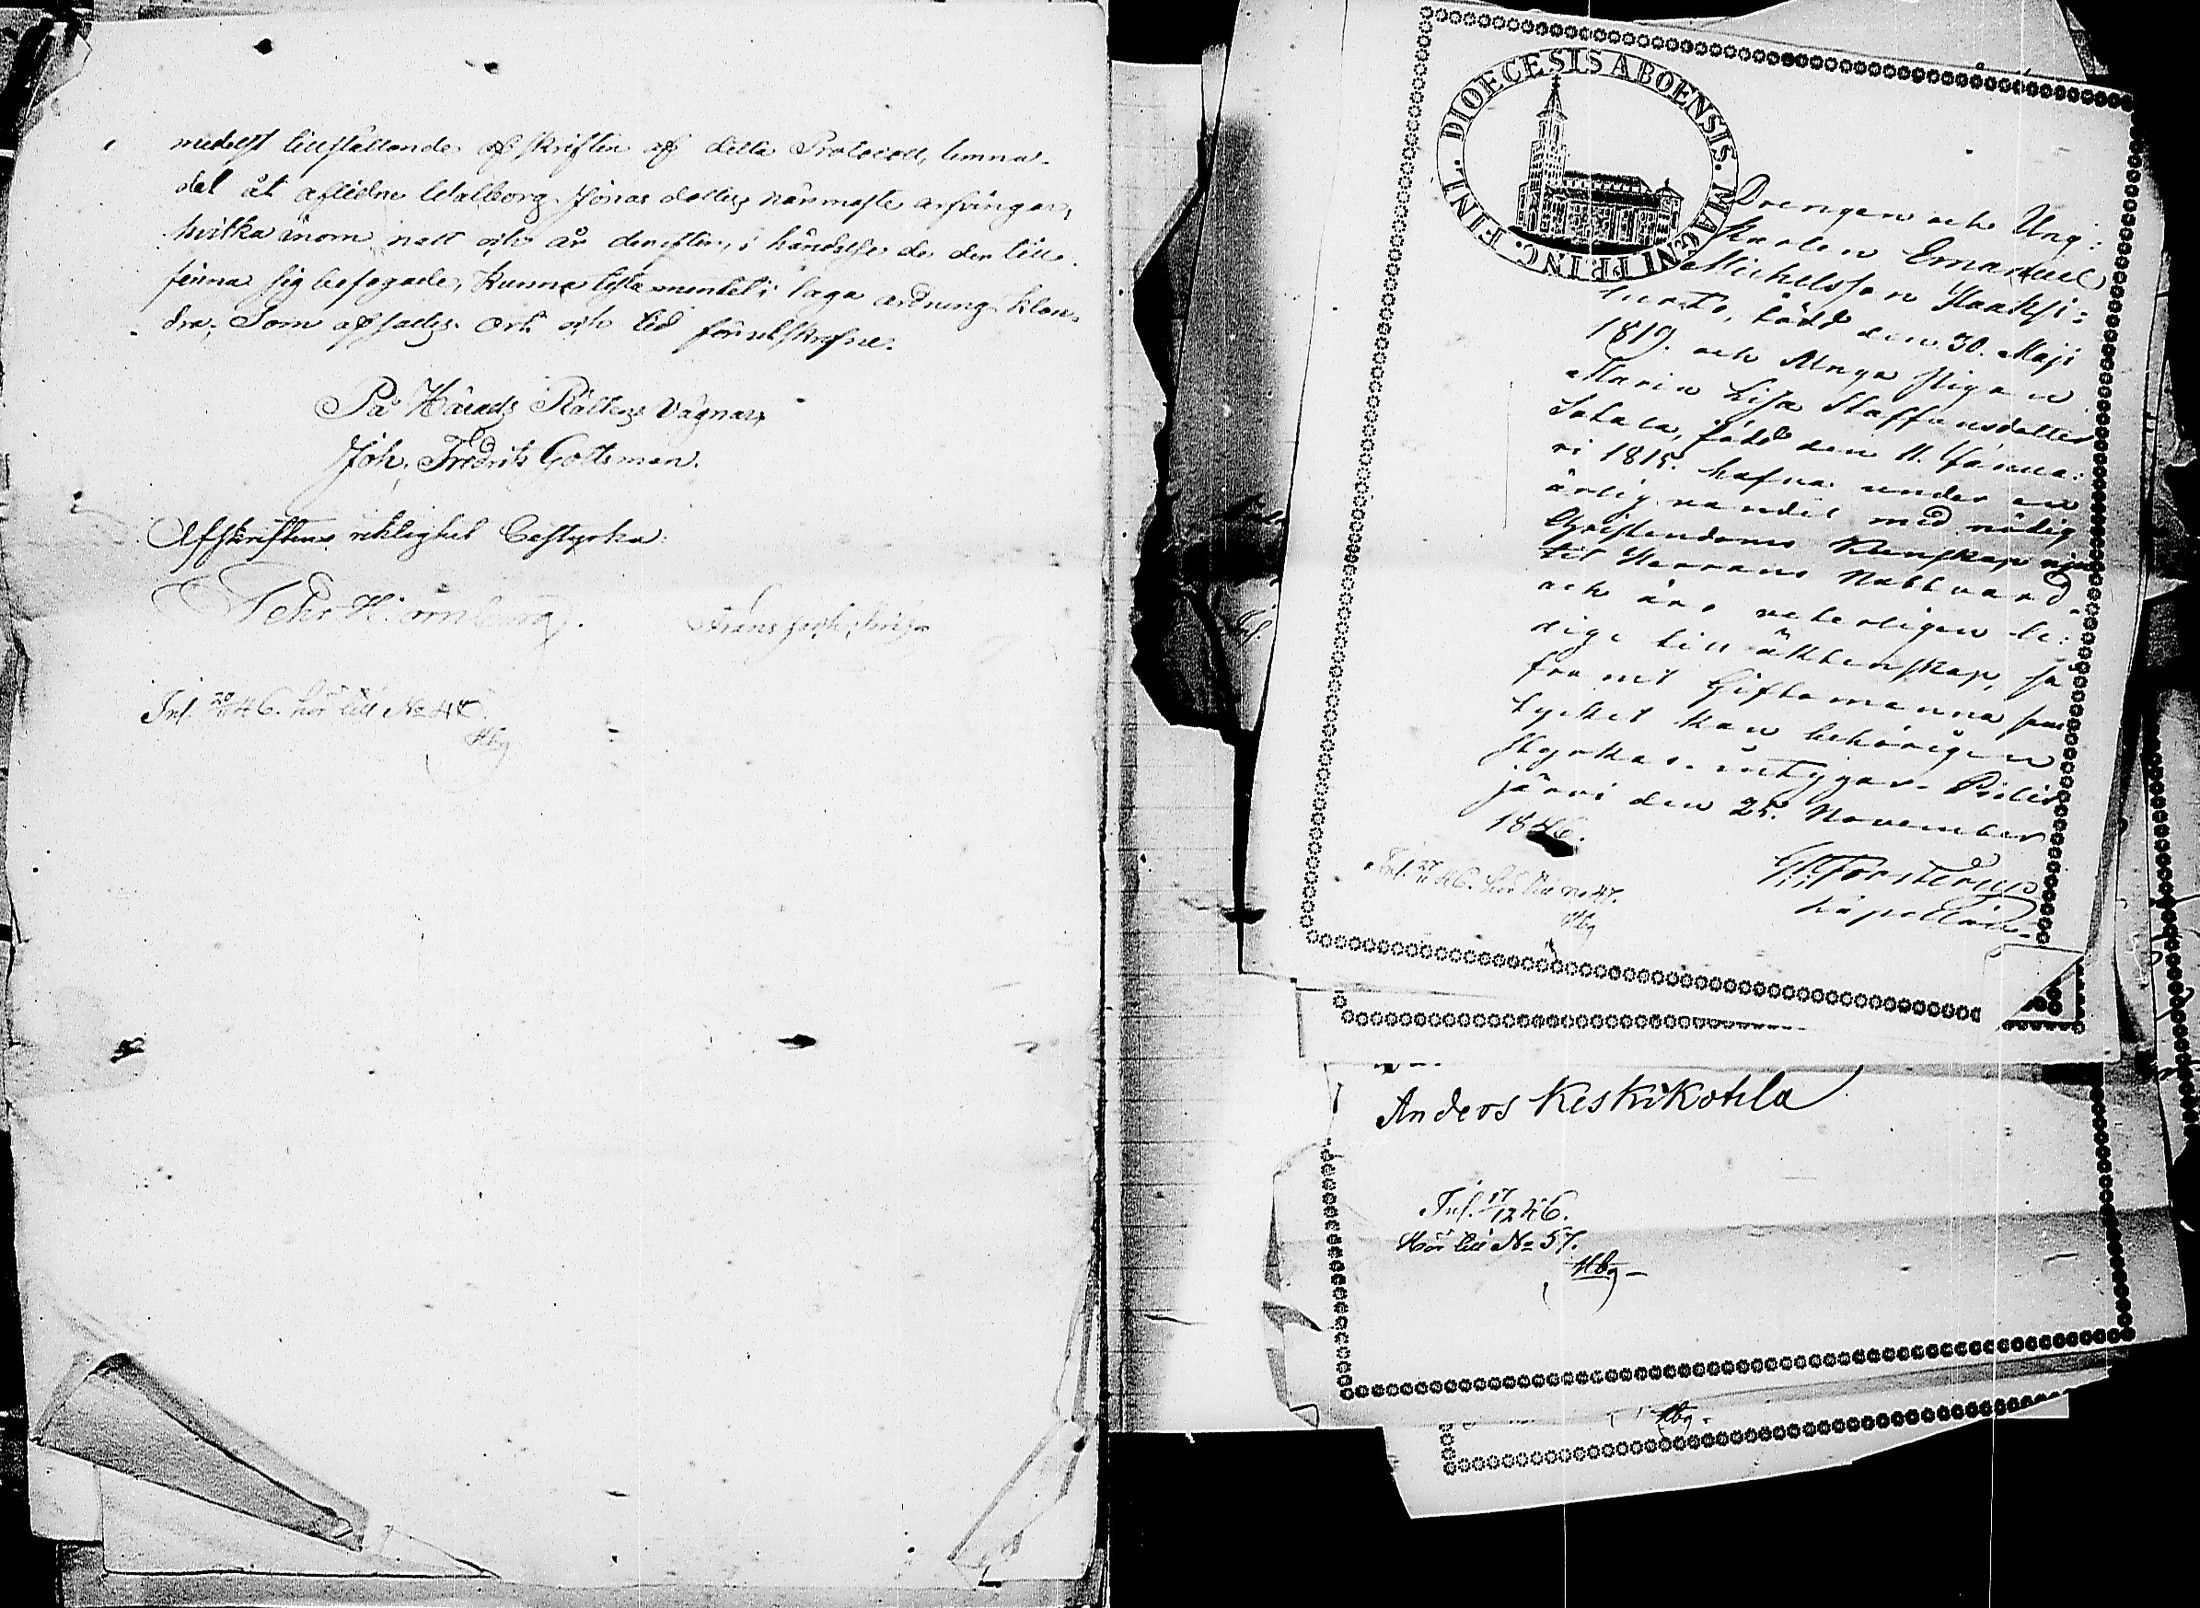 medelst tillställande af skriften af detta Protocoll, lemna-
des åt aflidne Walborg Jonas dotters närmaste arfvingar,
hvilka inom natt och år derefter, i händelse de der till
finna sig befogade, kunna testamentet i laga ordning klan-
dra; Som afsades. Ort och tid förutskrefne.
På Härads Rättens vägnar,
Joh. Fredrik Gottsman.
Afskriftens riktighet bestyrka:
Pehr Hornborg.
Frans
Inl. 20/11 46. hör till No
Hbg
DIOECESIS ABOENSIS. MAGNI PRINC. FINL.
Drengen och Ung-
karlen Emanuel
Michelsson Haaksi-
luoto, född den 30. Maji
1819. och Unga pigan
Maria Lisa Staffansdotter
Sakala, född den 11. Janua-
ri 1815. hafva under en
ärlig vandel med nödig
Christendoms kunskap njut-
it Herrans Nattvard
och äro veterligen le-
dige till äktenskap, så
framt Giftomanna sam-
tycket kan behörigen
styrkas. intygar. Pielis-
järvi den 25. November
1846.
Forsterus
Kapellan.
Inl. 27/11 46. hör till No 47.
Hbg
Anders Keskikohla
Inl. 17/12 46.
Hör till No 57.
Hbg
Hbg.